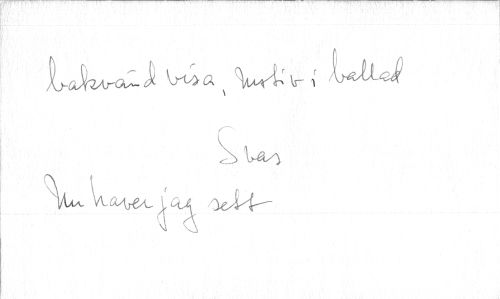 bakvänd visa, motiv i ballad
Svas
Nu haver jag sett